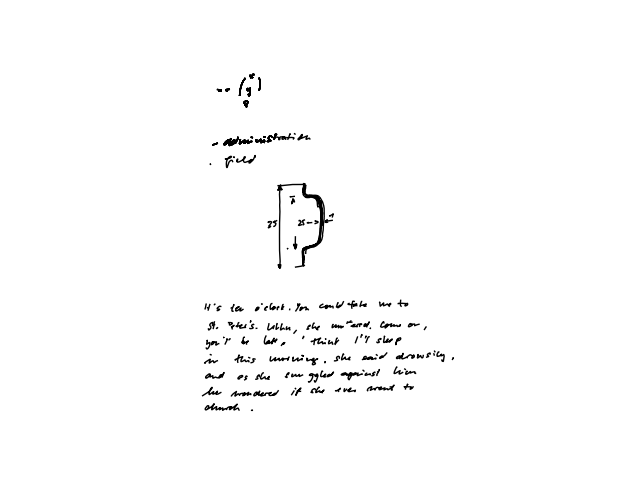 x
y
8
- administration
. field
35
25
1
It's ten o'clock. You could take me to
St. Peter's. Uhhu, she murmured. Come on,
you'll be late, I think I'll sleep
in this morning, she said drowsily,
and as she snuggled against him
he wondered if she ever went to
church.